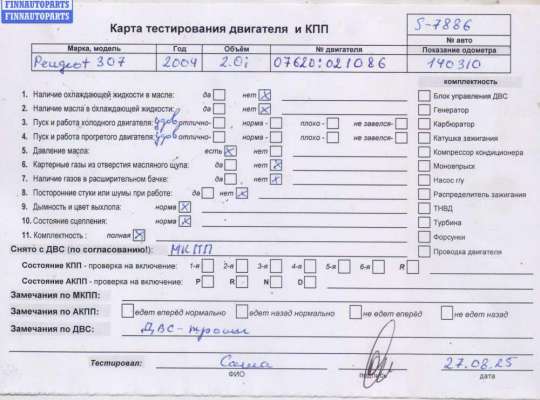 FINNAUTOPARTS
FINNAUTOPARTS
Карта тестирования двигателя и КПП
S-7886
№ авто
Марка, модель Год Объём № двигателя Показание одометра
Peugeot 307 2004 2.0i 140310
комплектность
1. Наличие охлаждающей жидкости в масле: да нет Блок управления ДВС
2. Наличие масла в охлаждающей жидкости: да нет Генератор
3. Пуск и работа холодного двигателя: удов отлично- норма - плохо - не завелся- Карбюратор
4. Пуск и работа прогретого двигателя: удов отлично- норма - плохо - не завелся- Катушка зажигания
5. Давление масла: есть нет Компрессор кондиционера
6. Картерные газы из отверстия масляного щупа: да нет Моновпрыск
7. Наличие газов в расширительном бачке: да нет Насос г/у
8. Посторонние стуки или шумы при работе: да нет Распределитель зажигания
9. Дымность и цвет выхлопа: норма ТНВД
10. Состояние сцепления: норма Турбина
11. Комплектность : полная Форсунки
Снято с ДВС (по согласованию!): МКПП Проводка двигателя
Состояние КПП - проверка на включение: 1-я 2-я 3-я 4-я 5-я 6-я R
Состояние АКПП - проверка на включение: P R N D
Замечания по МКПП:
Замечания по АКПП: едет вперёд нормально едет назад нормально не едет вперёд не едет назад
Замечания по ДВС: ДВС-
Тестировал: Саша 27.08.25
ФИО подпись дата